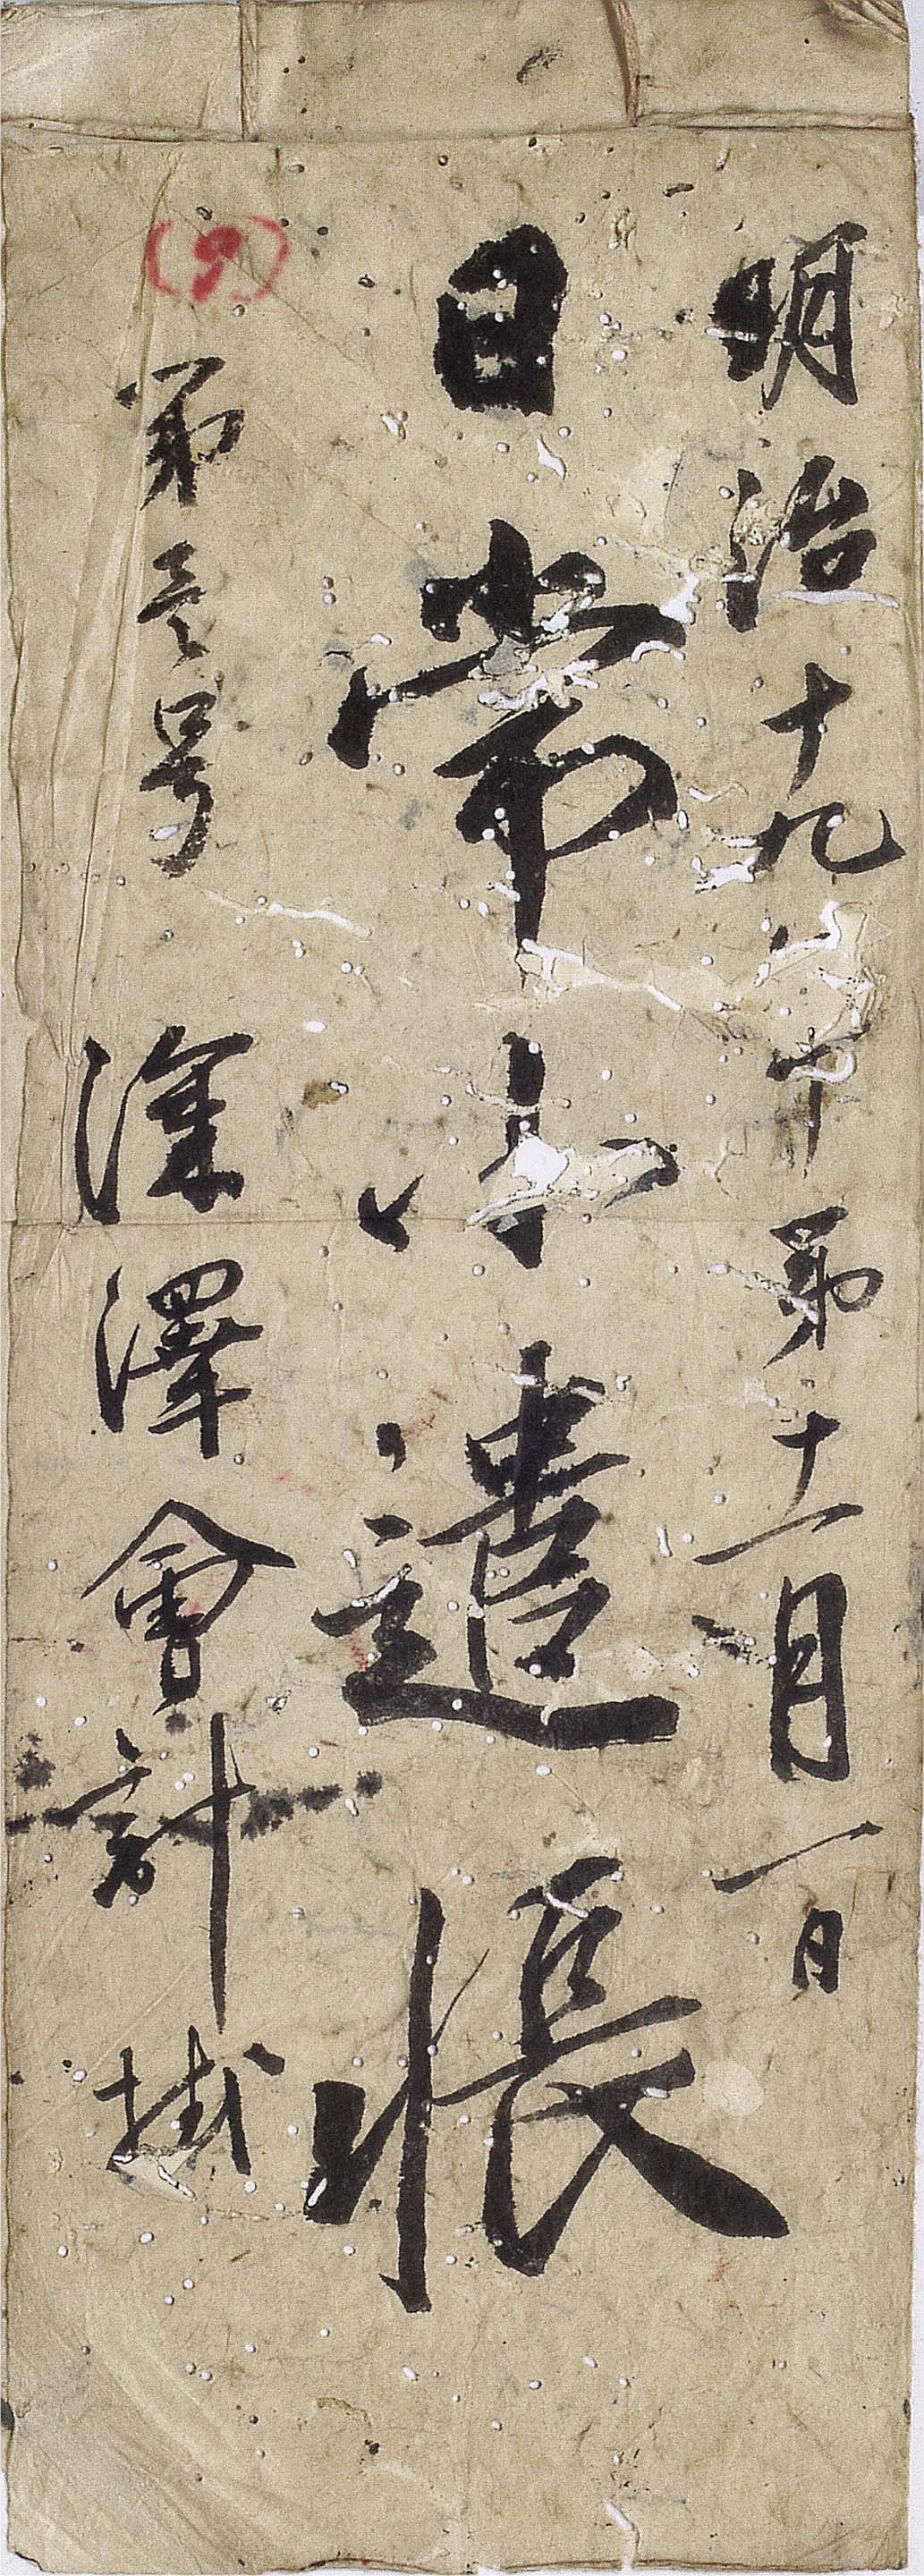 明治十九年第十一月一日
日常小遣帳
第壱号 深澤會計掛